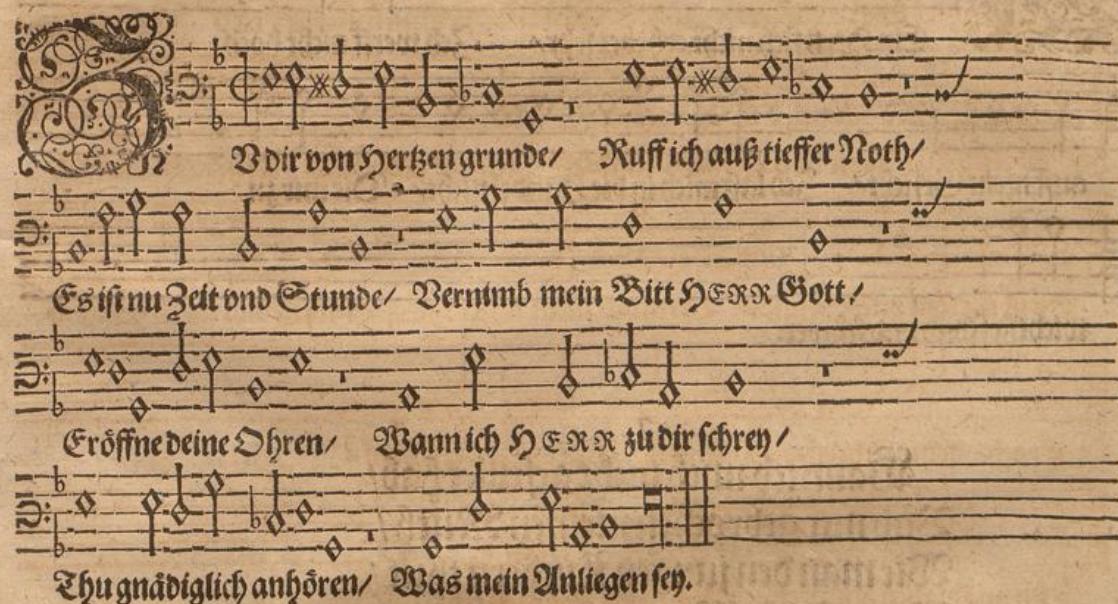 ZV dir von Hertzen grunde/ Ruff ich auß tieffer Noth/
Es ist nu Zeit vnd Stunde/ Vernimb mein Bitt HERR Gott/
Eröffne deine Ohren/ Wann ich HERR zu dir schrey/
Thu gnädiglich anhören/ Was mein Anliegen sey.